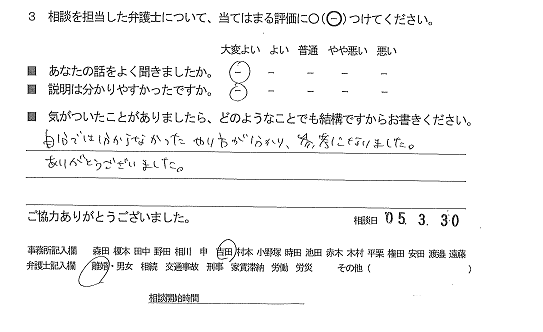 3 相談を担当した弁護士について、当てはまる評価に○(⊖)つけてください。
大変よい よい 普通 やや悪い 悪い
■ あなたの話をよく聞きましたか。 − − − − −
■ 説明は分かりやすかったですか。 − − − − −
■ 気がついたことがありましたら、どのようなことでも結構ですからお書きください。
自分では分からなかった やり方が分かり、参考になりました。
ありがとうございました。
ご協力ありがとうございました。 相談日 '05. 3. 30
事務所記入欄 森田 榎木 田中 野田 相川 申 吉田 村木 小野塚 時田 池田 赤木 木村 平栗 権田 安田 渡邉 遠藤
弁護士記入欄 離婚・男女 相続 交通事故 刑事 家賃滞納 労働 労災 その他 (
相談開始時間